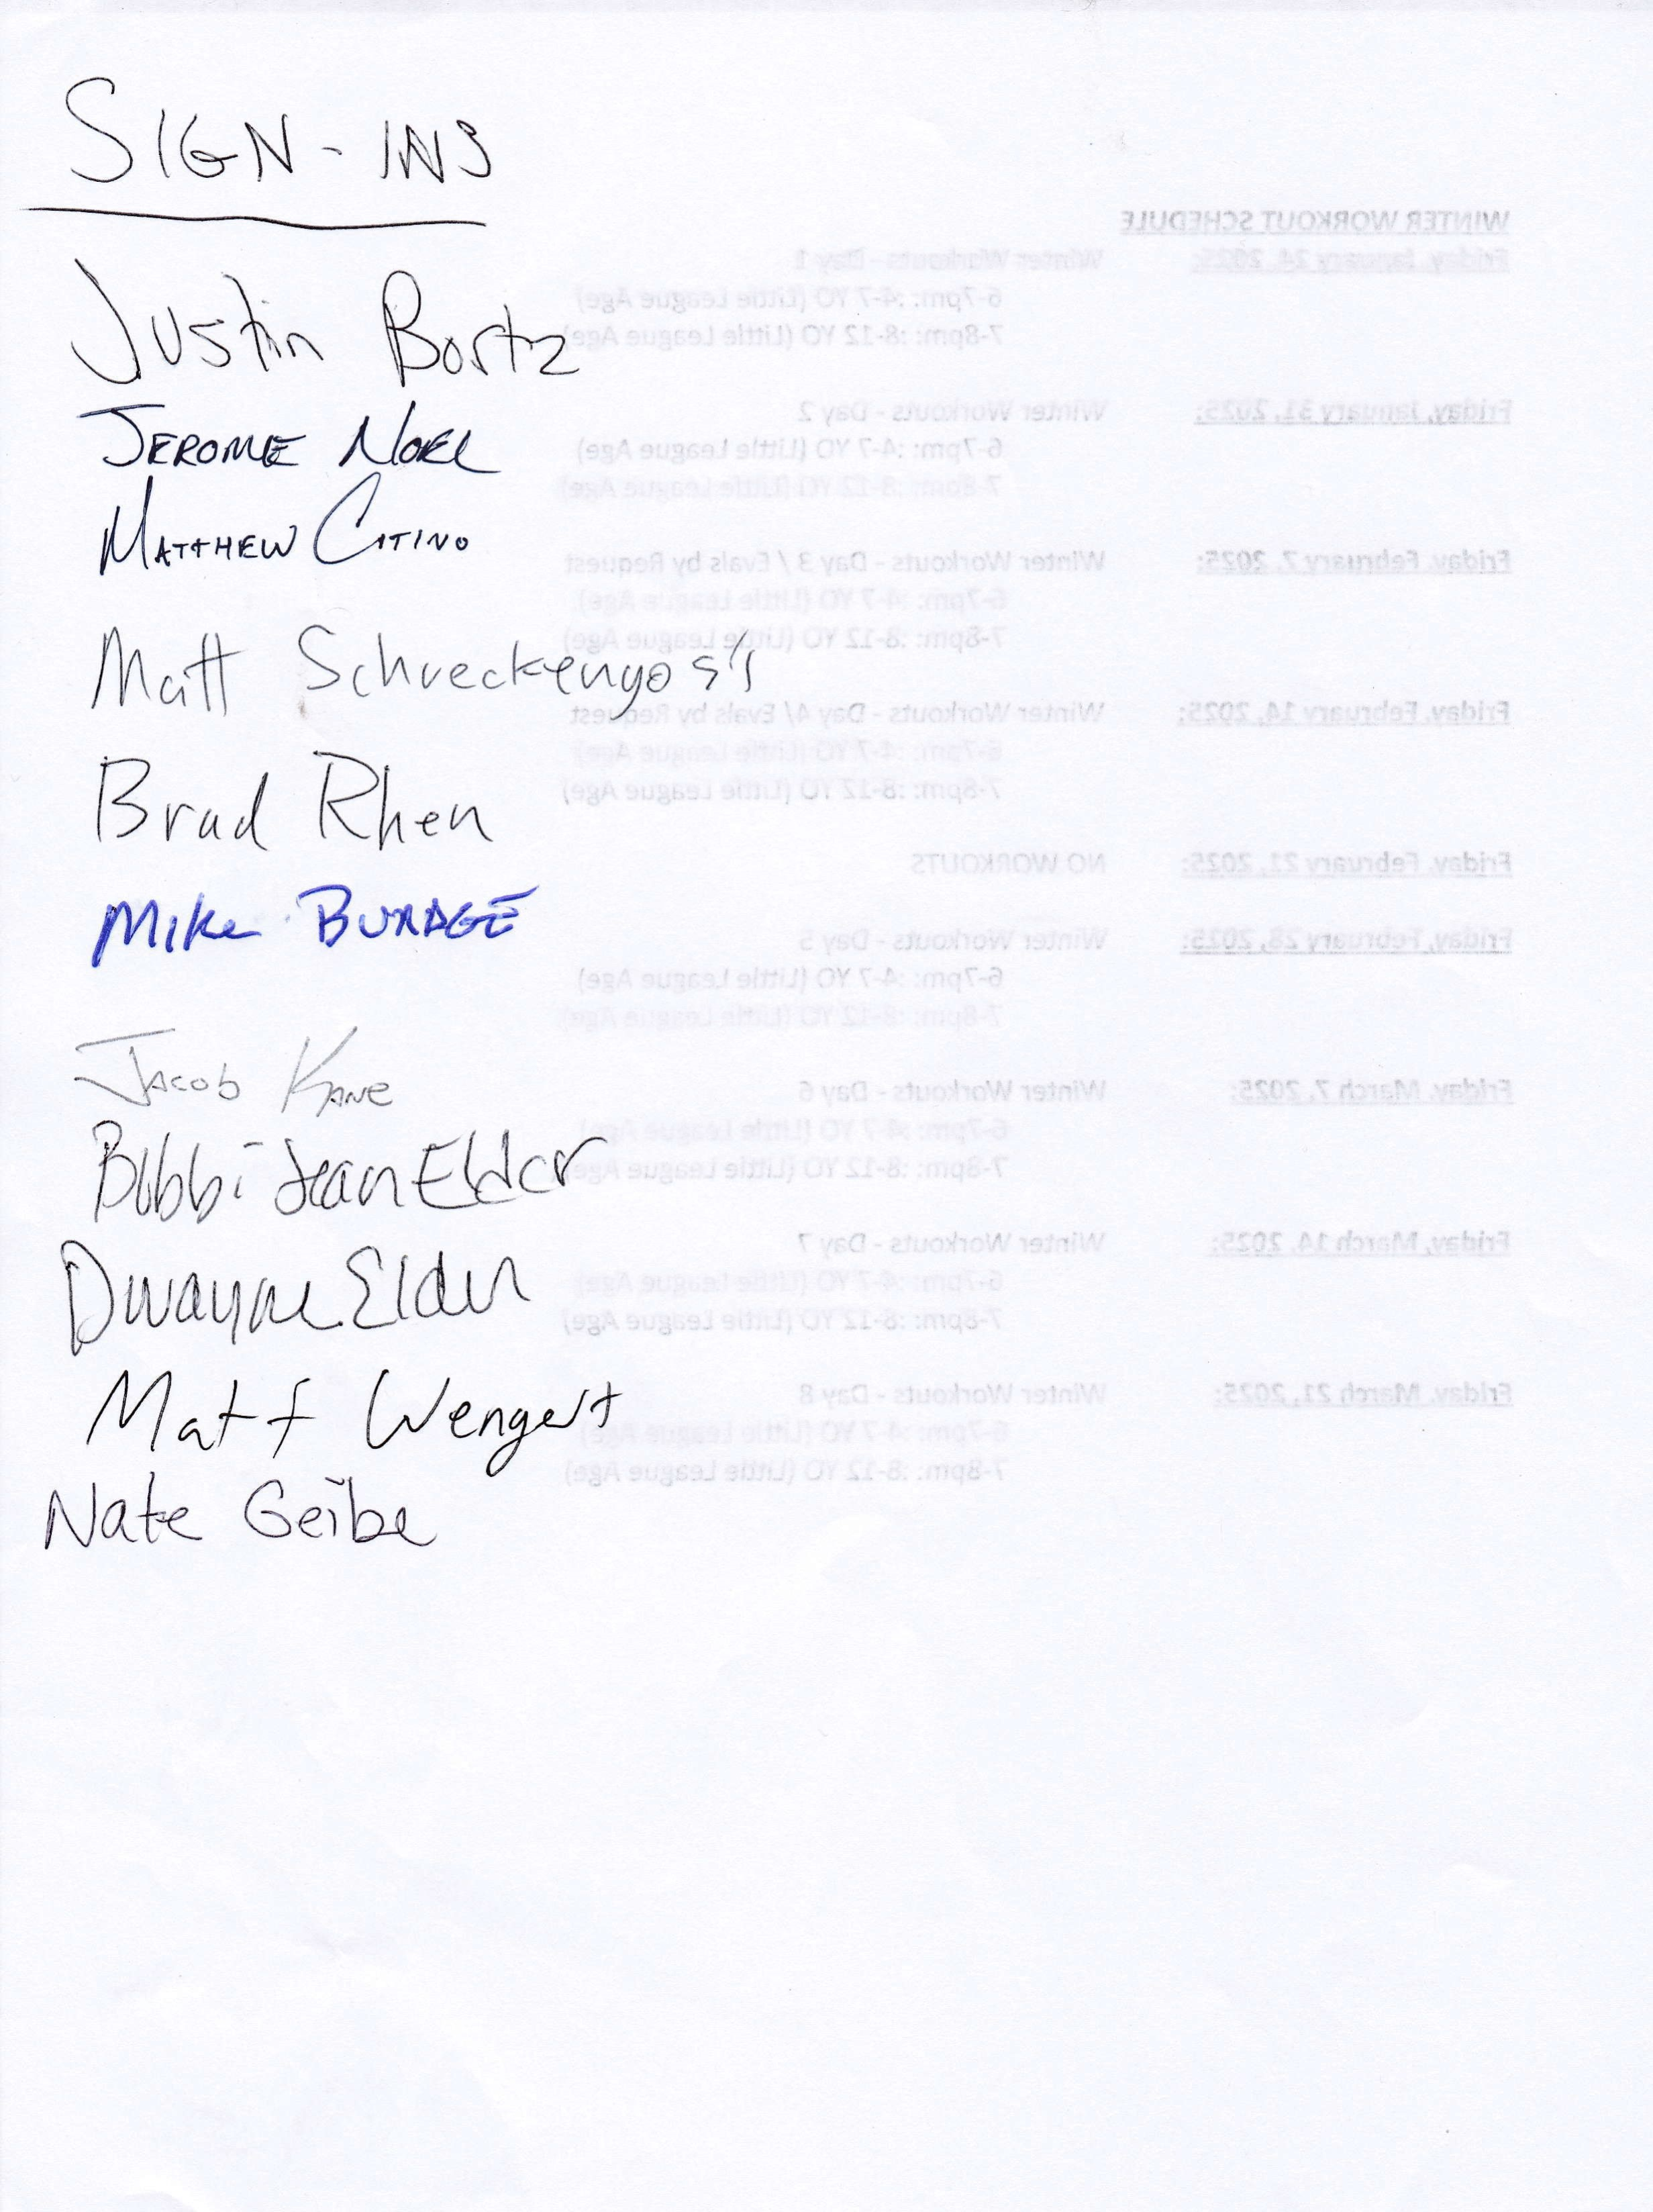 SIGN-INS
Justin Bortz
JEROME NOEL
MATTHEW CITINO
Matt
Brad Rhen
Mike BURDGE
JACOB KANE
Bobbi Jean Elder
Dwayne Elder
Matt Wengert
Nate Geibe
WINTER WORKOUT SCHEDULE
Friday, January 24, 2025: Winter Workouts - Day 1
6-7pm: :4-7 YO (Little League Age)
7-8pm: :8-12 YO (Little League Age)
Friday, January 31, 2025: Winter Workouts - Day 2
6-7pm: :4-7 YO (Little League Age)
7-8pm: :8-12 YO (Little League Age)
Friday, February 7, 2025: Winter Workouts - Day 3 / Evals by Request
6-7pm: :4-7 YO (Little League Age)
7-8pm: :8-12 YO (Little League Age)
Friday, February 14, 2025: Winter Workouts - Day 4/ Evals by Request
6-7pm: :4-7 YO (Little League Age)
7-8pm: :8-12 YO (Little League Age)
Friday, February 21, 2025: NO WORKOUTS
Friday, February 28, 2025: Winter Workouts - Day 5
6-7pm: :4-7 YO (Little League Age)
7-8pm: :8-12 YO (Little League Age)
Friday, March 7, 2025: Winter Workouts - Day 6
6-7pm: :4-7 YO (Little League Age)
7-8pm: :8-12 YO (Little League Age)
Friday, March 14, 2025: Winter Workouts - Day 7
6-7pm: :4-7 YO (Little League Age)
7-8pm: :8-12 YO (Little League Age)
Friday, March 21, 2025: Winter Workouts - Day 8
6-7pm: :4-7 YO (Little League Age)
7-8pm: :8-12 YO (Little League Age)